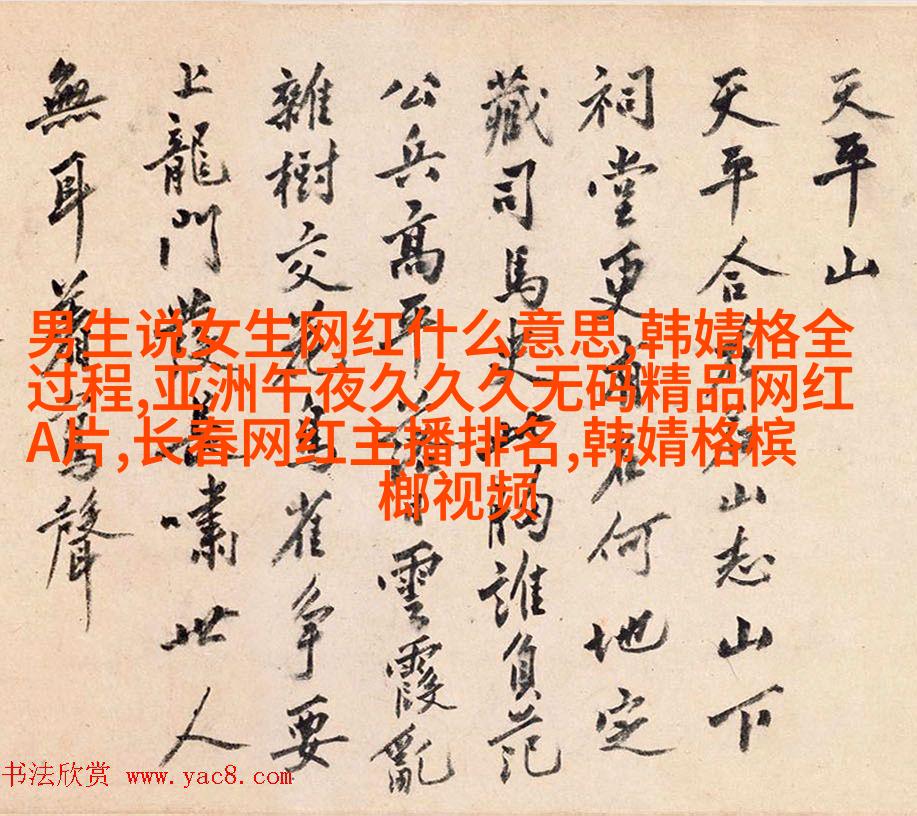 天平山
天平合山志山下
祠堂更何地定
藏司馬史誰負范
公兵高平雲霞亂
雜樹交花雀争要
上龍門嘯世人
無耳聲
男生说女生网红什么意思,韩婧格全
过程,亚洲午夜久久久无码精品网红
A片,长春网红主播排名,韩婧格槟
榔视频
书法欣赏 www.yac8.com